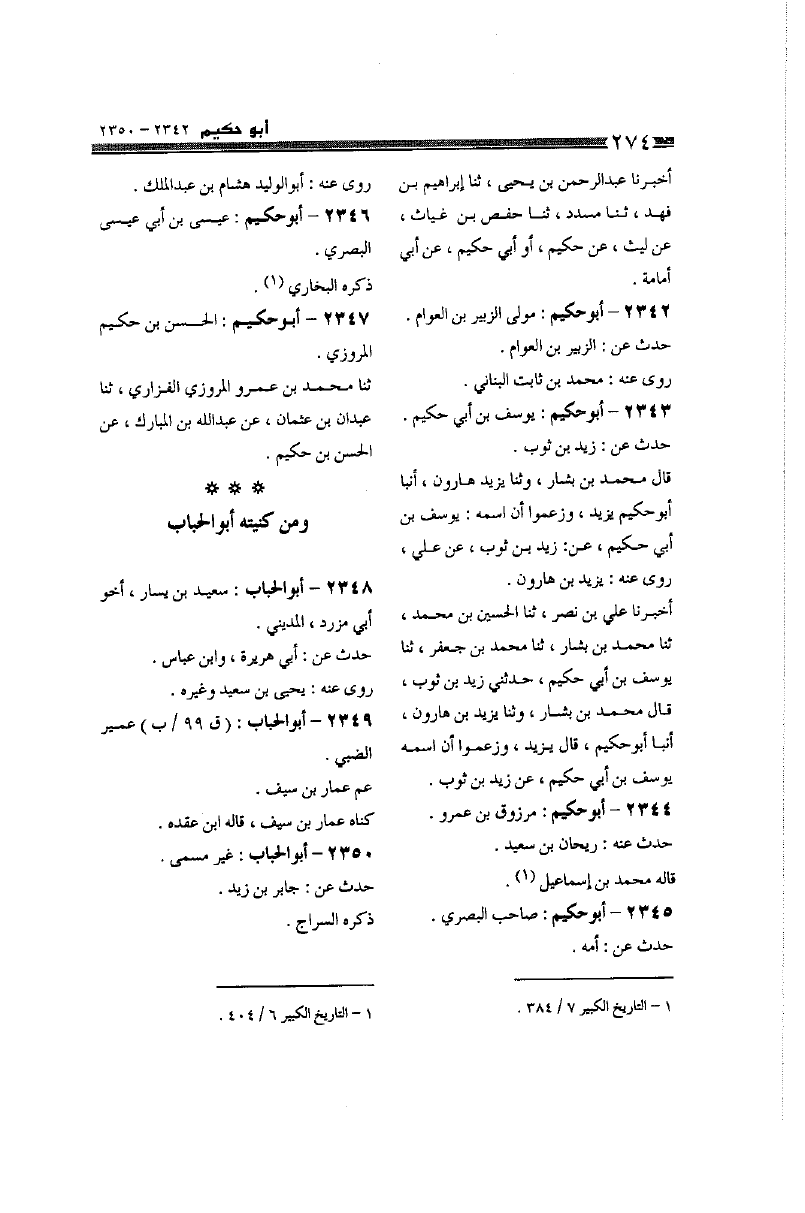 أبو حكيم ٢٣٤٢ – ٢٣٥٠
٢٧٤
أخبرنا عبدالرحمن بن يحيى ، ثنا إبراهيم بن
فهد ، ثنا مسدد ، ثنا حفص بن غياث ،
عن ليث ، عن حكيم ، أو أبي حكيم ، عن أبي
أمامة .
٢٣٤٢ – أبوحكيم : مولى الزبير بن العوام .
حدث عن : الزبير بن العوام .
روى عنه : محمد بن ثابت البناني .
٢٣٤٣ – أبوحكيم : يوسف بن أبي حكيم .
حدث عن : زيد بن ثوب .
قال محمد بن بشار ، وثنا يزيد هارون ، أنبا
أبوحكيم يزيد ، وزعموا أن اسمه : يوسف بن
أبي حكيم ، عن: زيد بن ثوب ، عن علي ،
روى عنه : يزيد بن هارون .
أخبرنا علي بن نصر ، ثنا الحسين بن محمد ،
ثنا محمد بن بشار ، ثنا محمد بن جعفر ، ثنا
يوسف بن أبي حكيم ، حدثني زيد بن ثوب ،
قال محمد بن بشار ، وثنا يزيد بن هارون ،
أنبا أبوحكيم ، قال يزيد ، وزعموا أن اسمه
يوسف بن أبي حكيم ، عن زيد بن ثوب .
٢٣٤٤ – أبوحكيم : مرزوق بن عمرو .
حدث عنه : ريحان بن سعيد .
قاله محمد بن إسماعيل (١) .
٢٣٤٥ – أبوحكيم : صاحب البصري .
حدث عن : أمه .
١ – التاريخ الكبير ٧ / ٣٨٤ .
روى عنه : أبوالوليد هشام بن عبدالملك .
٢٣٤٦ – أبوحكيم : عيسى بن أبي عيسى
البصري .
ذكره البخاري (١) .
٢٣٤٧ – أبوحكيم : الحسن بن حكيم
المروزي .
ثنا محمد بن عمرو المروزي الفزاري ، ثنا
عبدان بن عثمان ، عن عبدالله بن المبارك ، عن
الحسن بن حكيم .
* * *
ومن كنيته أبوالحباب
٢٣٤٨ – أبوالحباب : سعيد بن يسار ، أخو
أبي مزرد ، المديني .
حدث عن : أبي هريرة ، وابن عباس .
روى عنه : يحيى بن سعيد وغيره .
٢٣٤٩ – أبوالحباب : ( ق ٩٩ / ب ) عمير
الضبي .
عم عمار بن سيف .
كناه عمار بن سيف ، قاله ابن عقده .
٢٣٥٠ – أبوالحباب : غير مسمى .
حدث عن : جابر بن زيد .
ذكره السراج .
١ – التاريخ الكبير ٦ / ٤٠٤ .